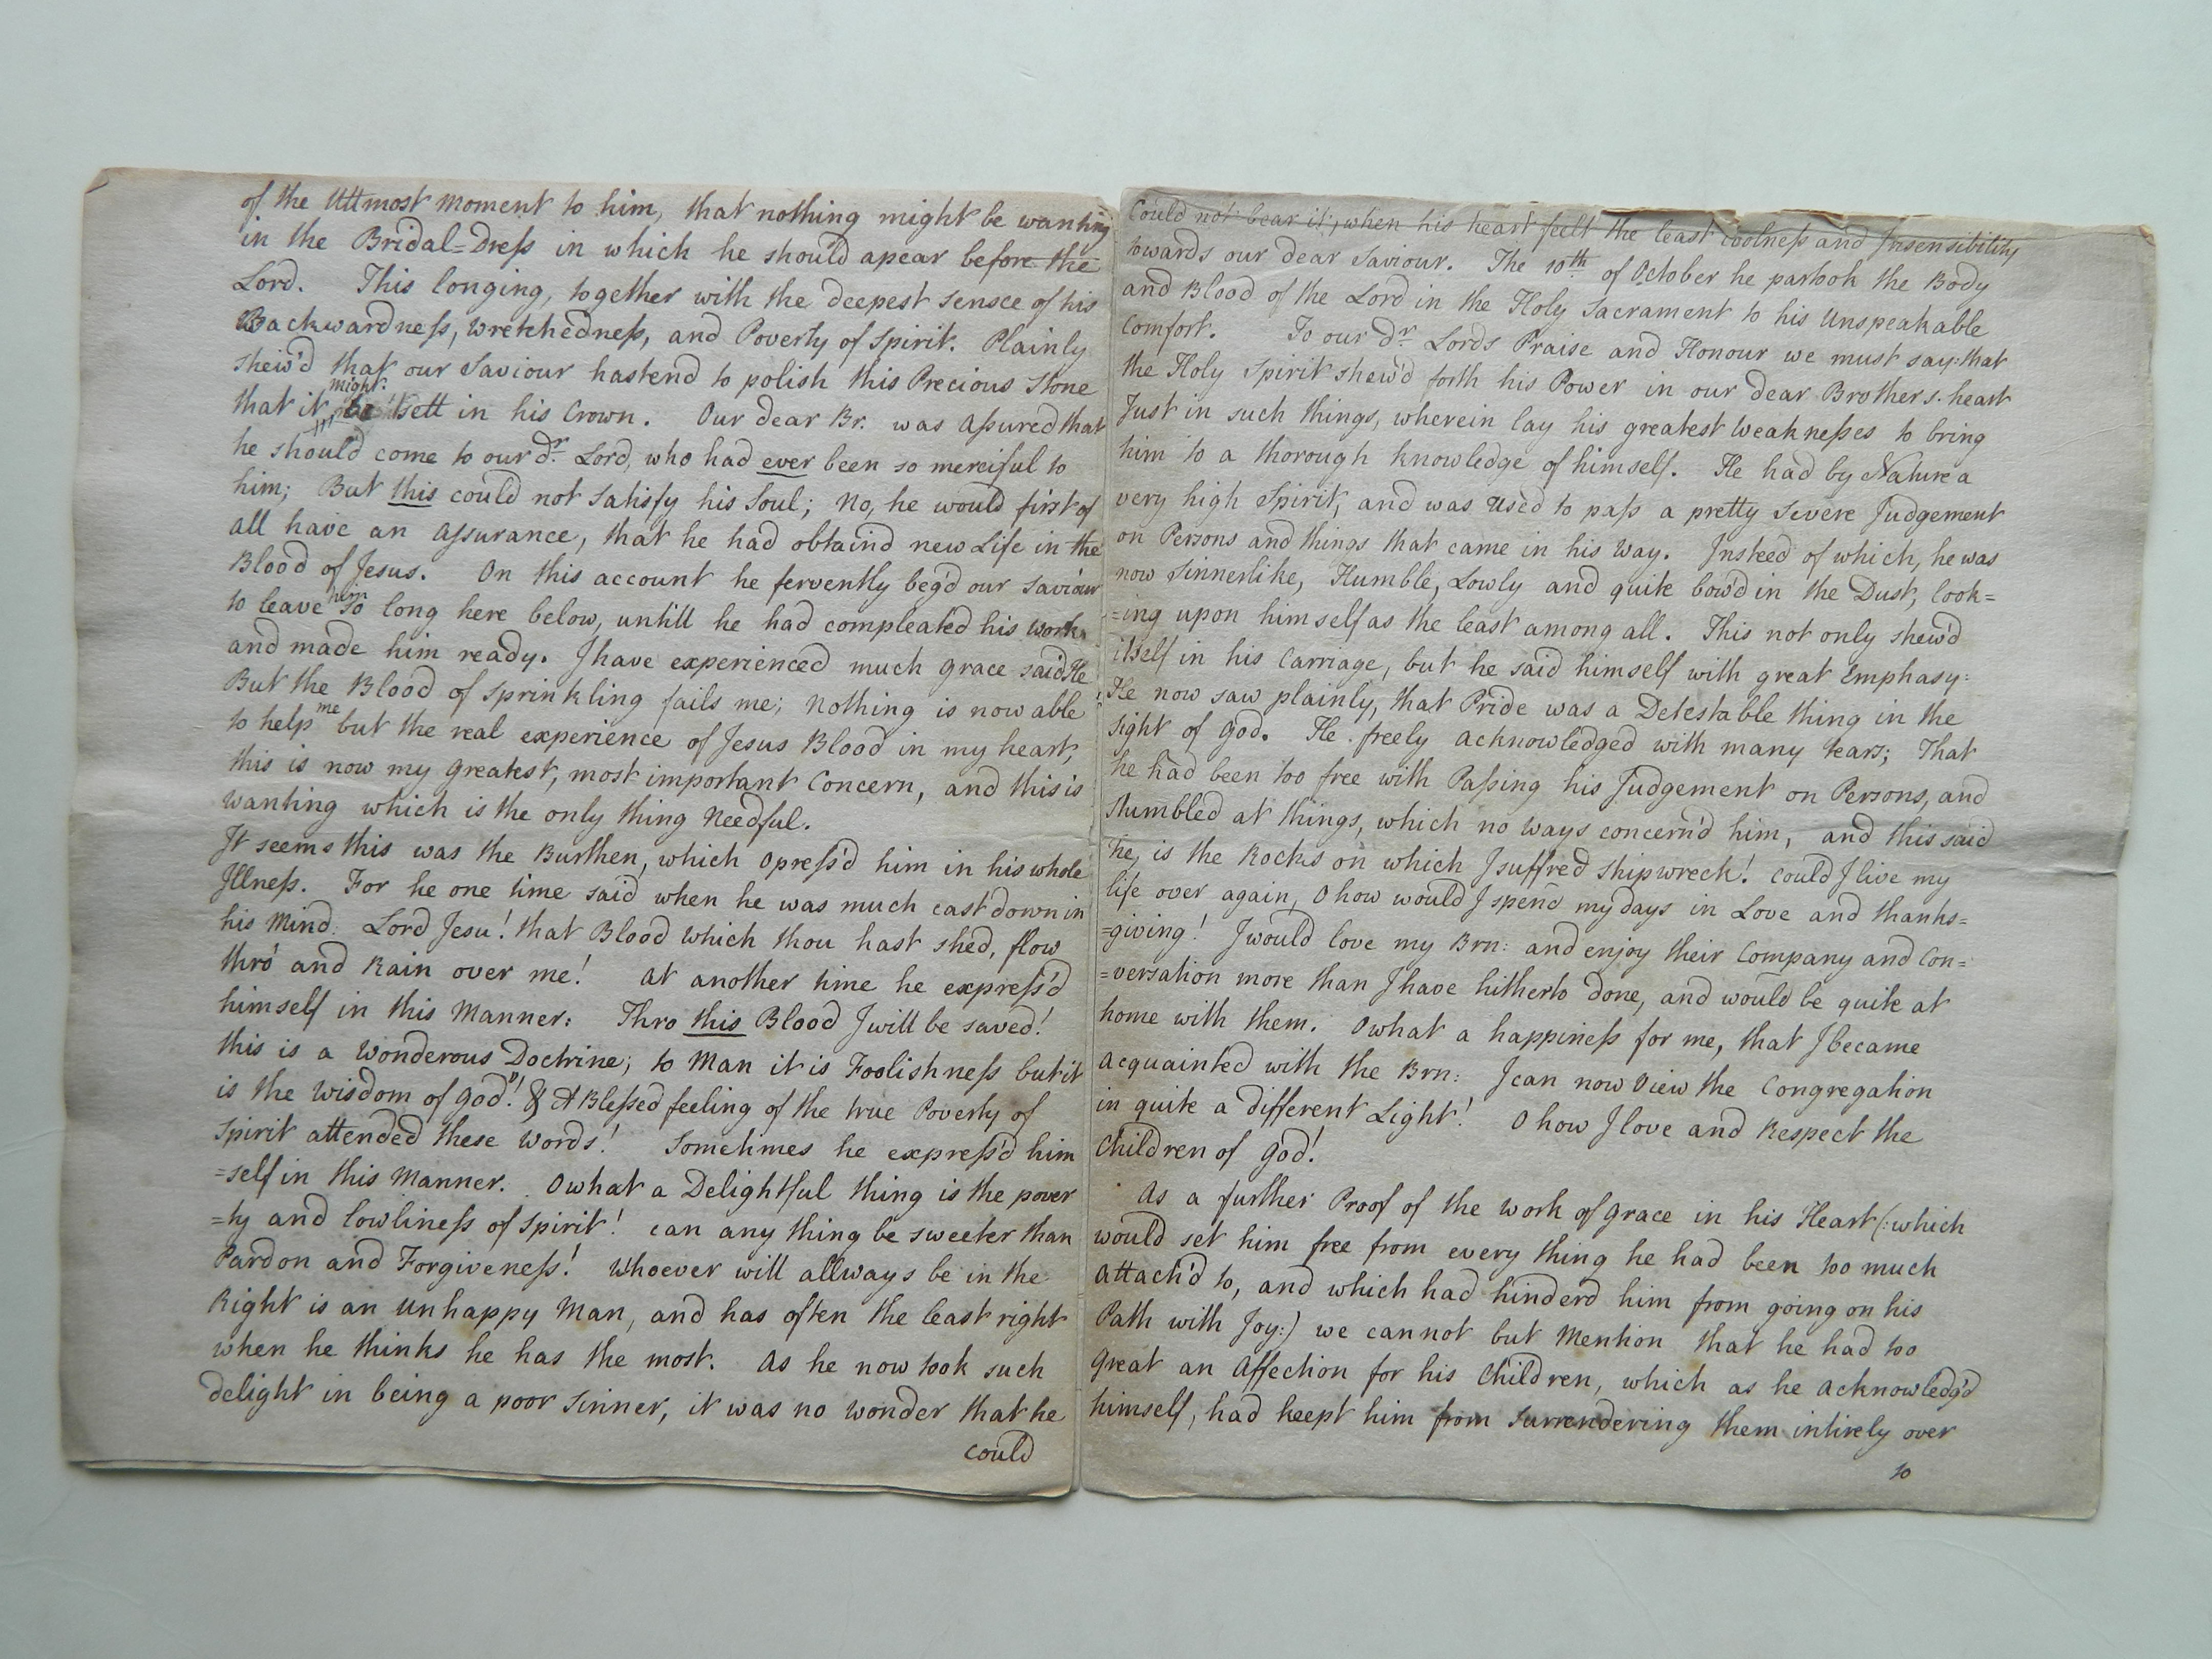 of the Uttmost Moment to him, that nothing might be wanting
in the Bridal=Dress in which he should apear before the
Lord. This longing, together with the deepest sensce of his
Backwardness, wretchedness, and Poverty of Spirit. Plainly
shew'd that our Saviour hastend to polish this Precious Stone
that it might be sett in his Crown. Our dear Br. was assured that
he should come to our dr. Lord, who had ever been so merciful to
him; But this could not satisfy his Soul; No, he would first of
all have an assurance, that he had obtaind new Life in the
Blood of Jesus. On this account he fervently beg'd our Saviour
to leave him so long here below, untill he had compleated his work
and made him ready. I have experienced much grace said He
But the Blood of sprinkling fails me; Nothing is now able
to help me but the real experience of Jesus Blood in my heart,
this is now my greatest, most important Concern, and this is
wanting which is the only thing Needful.
It seems this was the Burthen, which Opress'd him in his whole
Illness. For he one time said when he was much cast down in
his Mind: Lord Jesu! that Blood which thou hast shed, flow
thro' and Rain over me! At another time he express'd
himself in this Manner: Thro this Blood I will be saved!
this is a Wonderous Doctrine; to Man it is Foolishness but it
is the Wisdom of God"! & A Blessed feeling of the true Poverty of
Spirit attended these Words! Sometimes he express'd him
=self in this Manner. O what a Delightful thing is the pover
=ty and lowliness of Spirit! can any thing be sweeter than
Pardon and Forgiveness! Whoever will allways be in the
Right is an Unhappy Man, and has often the least right
when he thinks he has the most. As he now took such
delight in being a poor Sinner, it was no wonder that he
could
Could not bear it, when his heart felt the least coolness and Insensibility
towards our dear Saviour. The 10th of October he partook the Body
and Blood of the Lord in the Holy Sacrament to his Unspeakable
Comfort. To our dr. Lords Praise and Honour we must say: that
the Holy Spirit shew'd forth his Power in our dear Brothers heart
Just in such things, wherein lay his greatest Weaknesses to bring
him to a thorough knowledge of himself. He had by Nature a
very high Spirit, and was Used to pass a pretty severe Judgement
on Persons and things that came in his Way. Insteed of which, he was
now Sinnerlike, Humble, Lowly and quite bow'd in the Dust, look=
=ing upon himself as the least among all. This not only shew'd
itself in his Carriage, but he said himself with great Emphasy:
He now saw plainly, that Pride was a Detestable thing in the
sight of God. He freely acknowledged with many tears; That
he had been too free with Passing his Judgement on Persons, and
stumbled at things, which no ways concern'd him, and this said
he, is the Rocks on which I suffred shipwreck! could I live my
life over again, O how would I spend my days in Love and thanks=
=giving! I would love my Brn: and enjoy their Company and Con=
=versation more than I have hitherto done, and would be quite at
home with them. O what a happiness for me, that I became
acquainted with the Brn: I can now View the Congregation
in quite a different Light! O how I love and Respect the
Children of God!
As a further Proof of the Work of grace in his Heart (:which
would set him free from every thing he had been too much
attach'd to, and which had hinderd him from going on his
Path with Joy:) we cannot but Mention that he had too
great an Affection for his Children, which as he acknowledg'd
himself, had keept him from Surrendering them intirely over
to